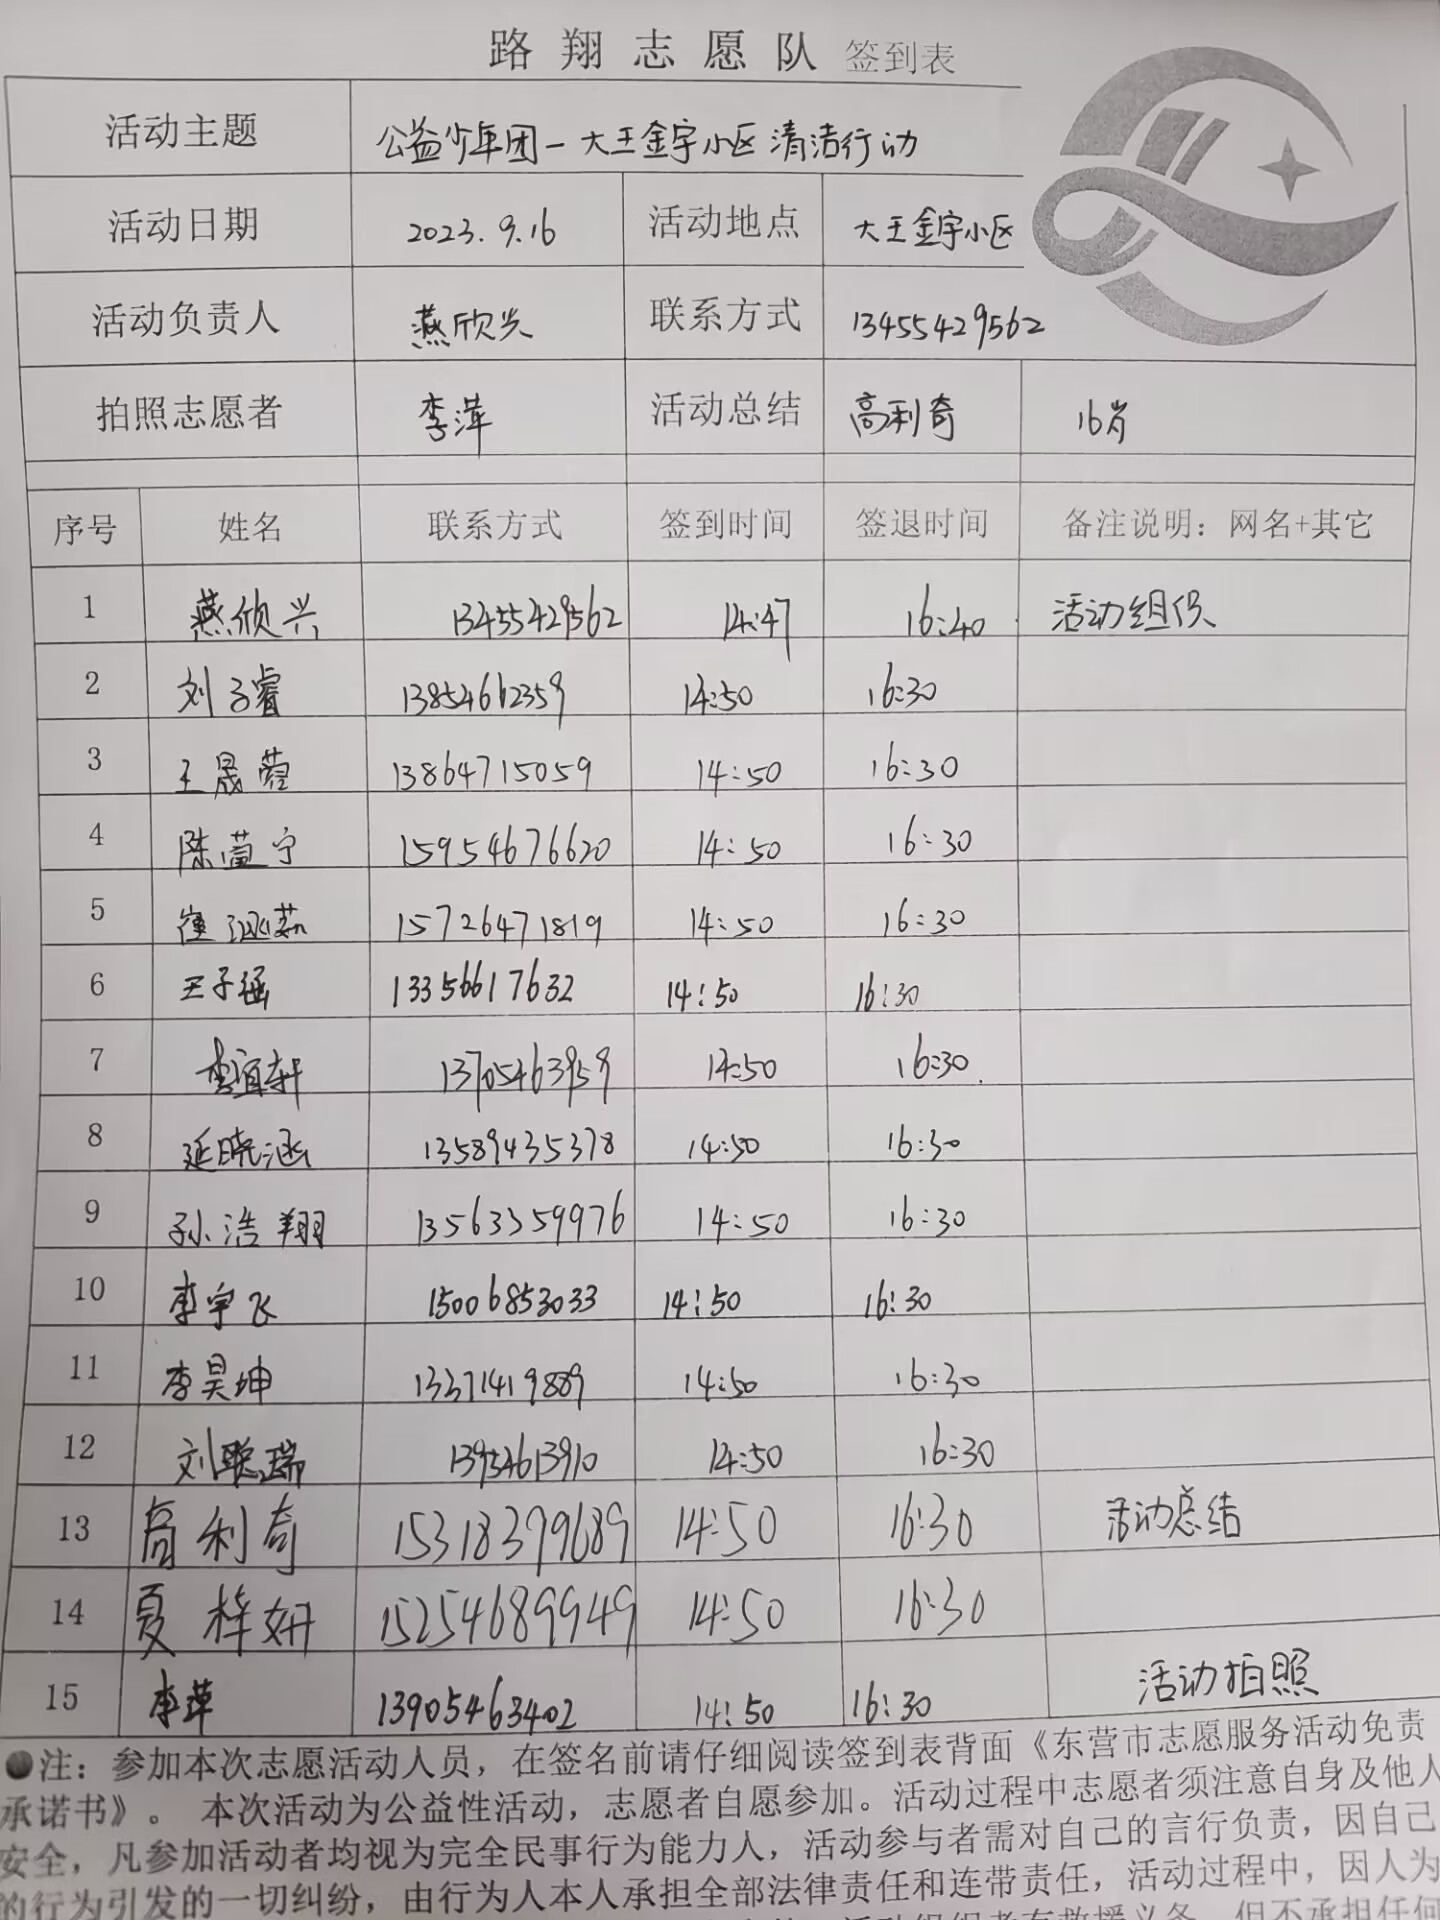 路翔志愿队 签到表
活动主题 公益少年团-大王金宇小区清洁行动
活动日期 2023.9.16 活动地点 大王金宇小区
活动负责人 燕欣兴 联系方式 13455429562
拍照志愿者 李萍 活动总结 高利奇 16岁
序号 姓名 联系方式 签到时间 签退时间 备注说明：网名+其它
1 燕欣兴 13455429562 14:47 16:40 活动组织
2 刘子睿 13854612359 14:50 16:30
3 王晟蓉 13864715059 14:50 16:30
4 陈萱宁 15954676620 14:50 16:30
5 崔涵茹 15726471819 14:50 16:30
6 王子涵 13356617632 14:50 16:30
7 李宜轩 13705463959 14:50 16:30
8 延晓涵 13589435378 14:50 16:30
9 孙浩翔 13563359976 14:50 16:30
10 李宇飞 15006853033 14:50 16:30
11 李昊坤 13371419889 14:50 16:30
12 刘聪瑞 13954613910 14:50 16:30
13 高利奇 15318399689 14:50 16:30 活动总结
14 夏梓妍 15254689949 14:50 16:30
15 李萍 13905463402 14:50 16:30 活动拍照
●注：参加本次志愿活动人员，在签名前请仔细阅读签到表背面《东营市志愿服务活动免责
承诺书》。 本次活动为公益性活动，志愿者自愿参加。活动过程中志愿者须注意自身及他人
安全，凡参加活动者均视为完全民事行为能力人，活动参与者需对自己的言行负责，因自己
的行为引发的一切纠纷，由行为人本人承担全部法律责任和连带责任，活动过程中，因人为
活动组织者有救援义务，但不承担任何